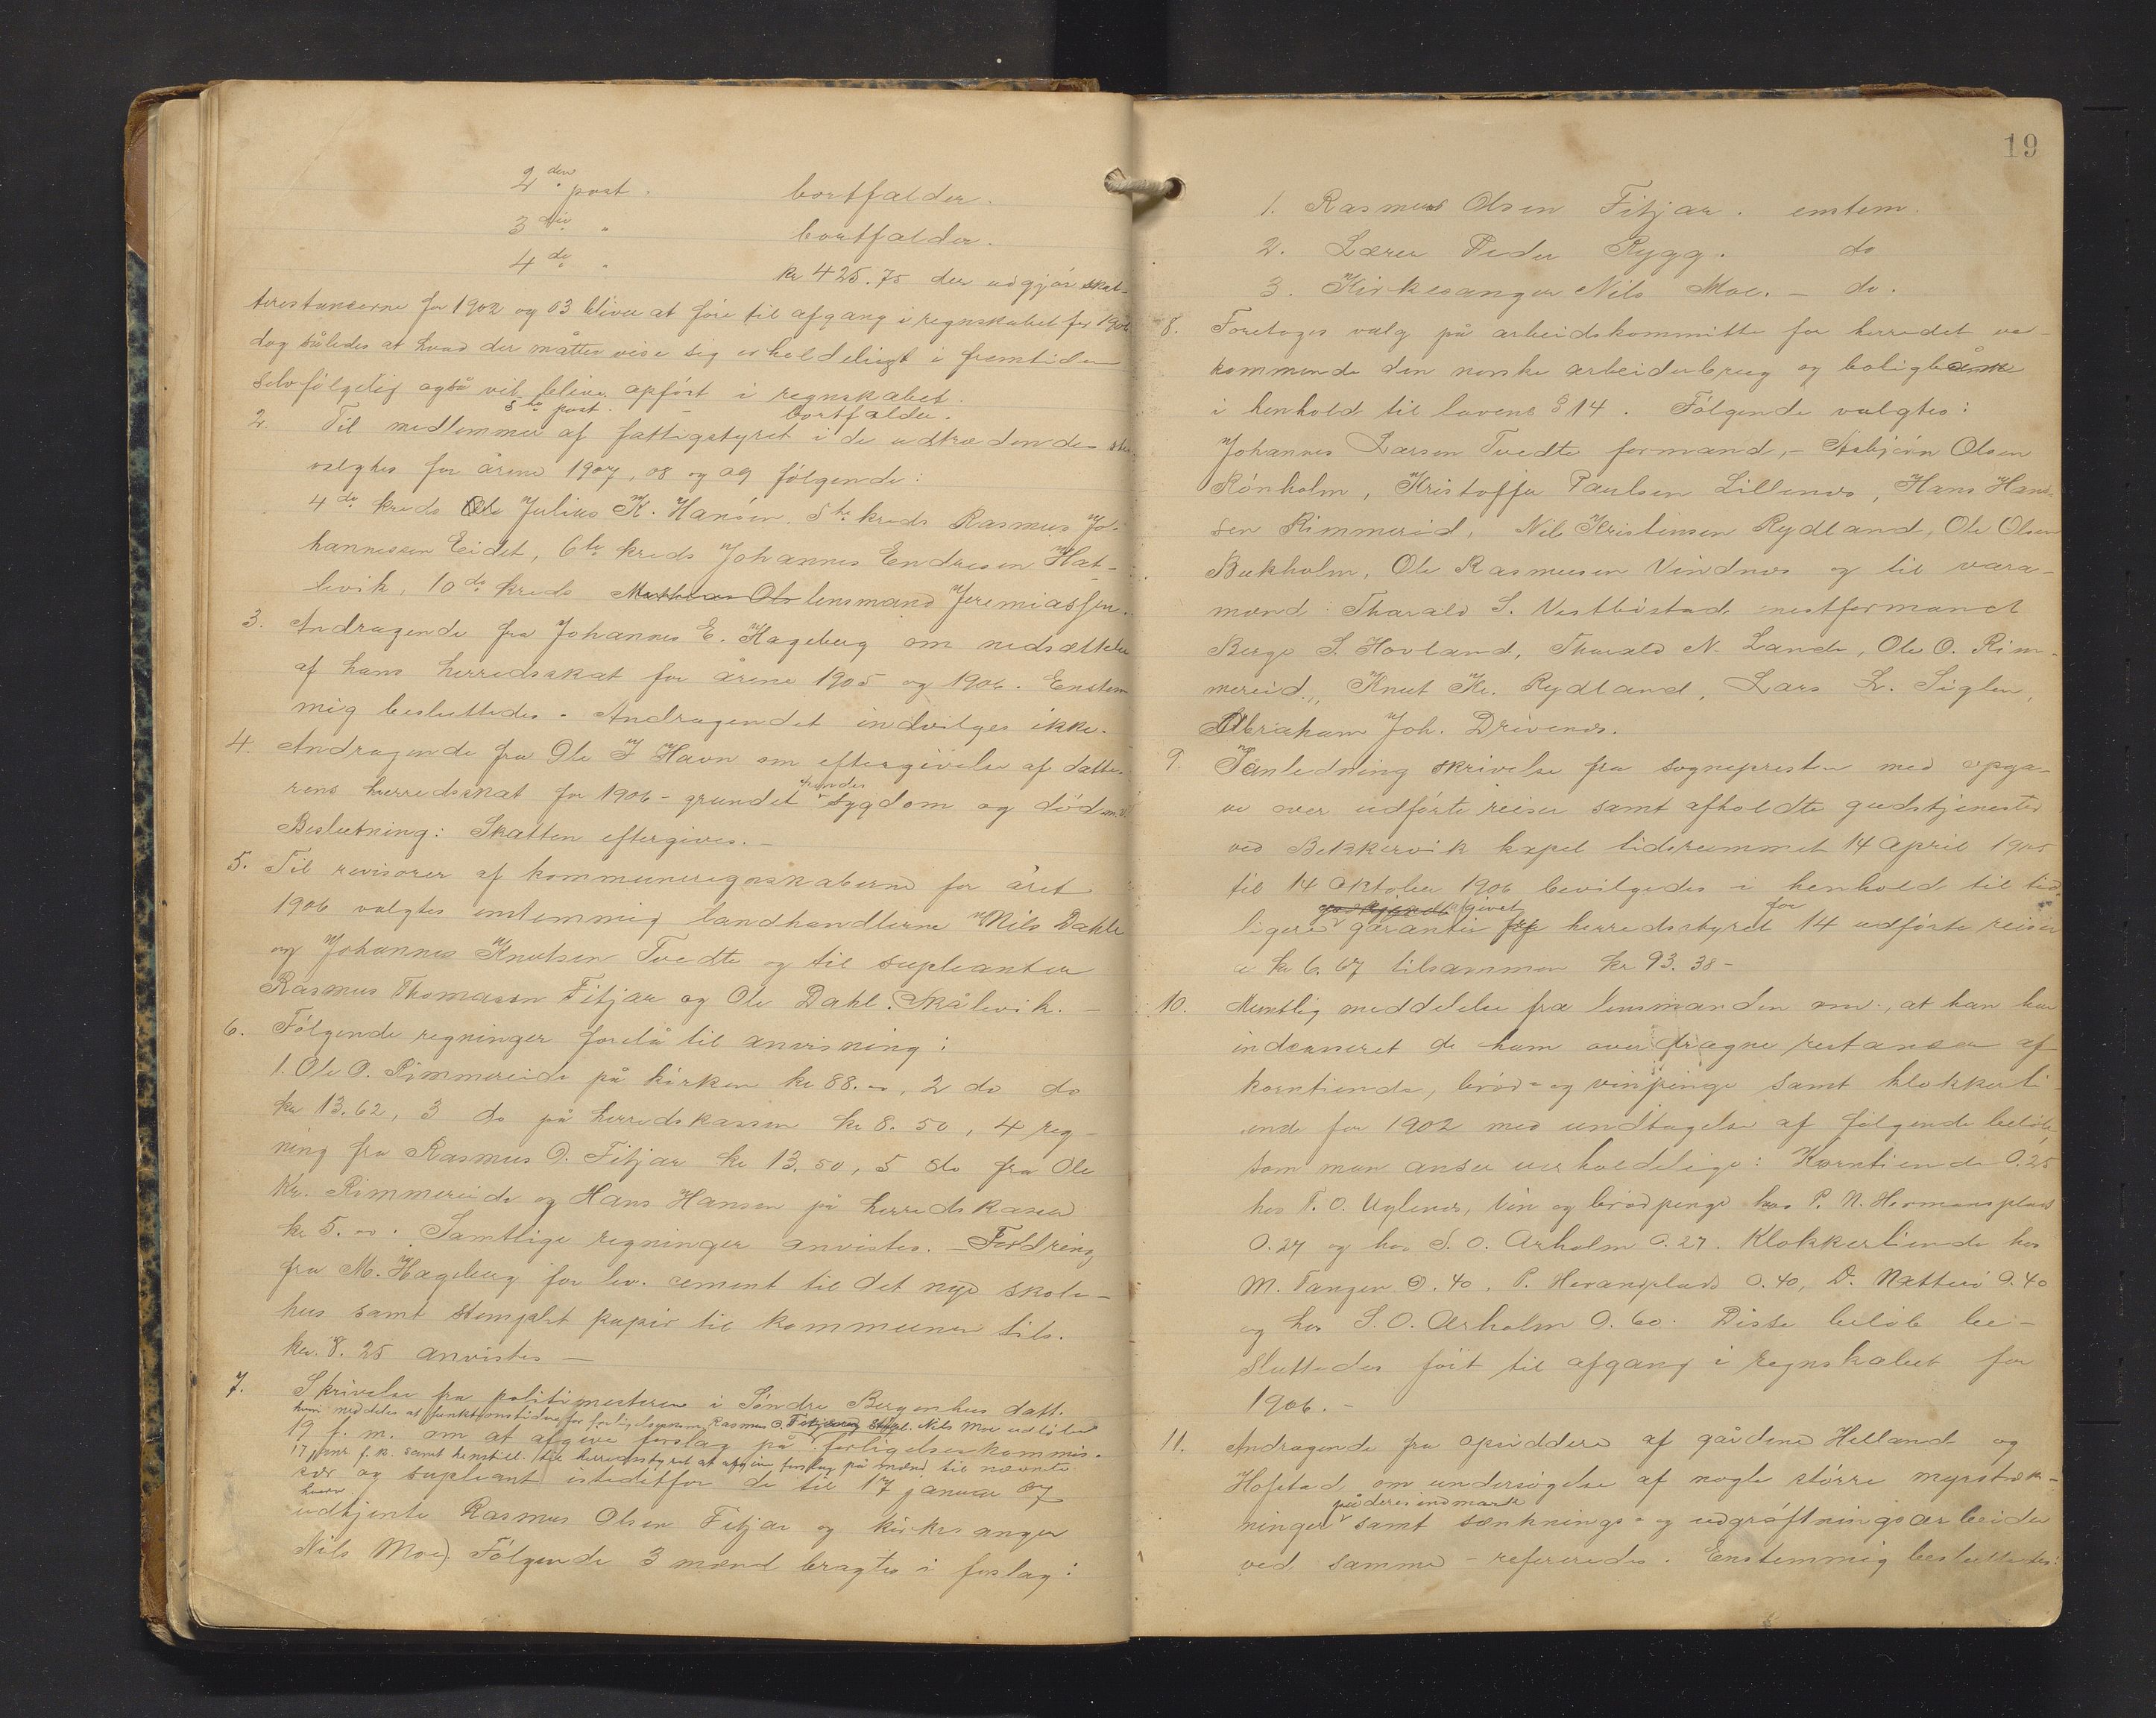 2den post. bortfalder.
3die " bortfalder.
4de " kr 425.75 der udgjør skat-
terestancerne for 1902 og 03 bliver at føre til afgang i regnskabet for 1906
dog således at hvad der måtte vise sig erholdeligt i fremtiden
selvfølgelig også vil blive opført i regnskabet.
5te post. - bortfalder.
2. Til medlemmer af fattigstyret i de udtrædendes sted
valgtes for årene 1907, 08 og 09 følgende:
4de kreds Ole Julius K. Hansen. 5te kreds Rasmus Jo-
hannessen Eidet, 6te kreds Johannes Endresen Hat-
levik, 10de kreds Mathias Ols lensmand Jeremiassen.
3. Andragende fra Johannes E. Hageberg om nedsættelse
af hans herredsskat for årene 1905 og 1906. Enstem
mig besluttedes. Andragendet indvilges ikke.
4. Andragende fra Ole J Havn om eftergivelse af datte-
rens herredsskat for 1906 - grundet hendes sygdom og død
Beslutning: Skatten eftergives. -
5. Til revisorer af kommuneregnskaberne for året
1906 valgtes enstemmig landhandlerne Nils Dahle
og Johannes Knutsen Tvedte og til supleanter
Rasmus Thomassen Fitjar og Ole Dahl. Skålevik. -
6. Følgende regninger forelå til anvisning:
1. Ole O. Rimmereide på kirken kr 88.00, 2 do do
kr 13.62, 3 do på herredskassen kr 8.50, 4 reg-
ning fra Rasmus O. Fitjar kr 13.50, 5 do fra Ole
Kr. Rimmereide og Hans Hansen på herredskassen
kr 5.00. Samtlige regninger anvistes. - Fordring
fra M. Hageberg for lev. cement til det nye skole-
hus samt stemplet papir til kommunen tils.
kr. 8.25 anvistes -
7. Skrivelse fra politimesteren i Søndre Bergenhus datt.
hvori meddeles at funktionstiden for forligelseskom. Rasmus O. Fitjar og Nils Moe udløber
19 f. m. om at afgive forslag på forligelseskommis-
17 janr f. k. samt henstill. til herredsstyret at afgive forslag på mænd til nævnte
sær og supleant istedetfor de til 17 januar 07
hverv.
udtjente Rasmus Olsen Fitjar og kirkesanger
Nils Moe). Følgende 3 mænd bragtes i forslag:
19
1. Rasmus Olsen Fitjar. enstem.
2. Lærer Peder Rygg. do
3. Kirkesanger Nils Moe. - do.
8. Foretoges valg på arbeidskommitte for herredet ve-
kommende den norske arbeiderbrug og boligbank
i henhold til lovens § 14. Følgende valgtes:
Johannes Larsen Tvedte formand, - Asbjørn Olsen
Rønholm, Kristoffer Paulsen Lillenes, Hans Han-
sen Rimmereid, Nils Kristensen Rydland, Ole Olsen
Bukholm, Ole Rasmussen Vindnes og til vara-
mænd: Tharald S. Vestbøstad, nestformand
Berge S. Hovland, Tharald N. Lande, Ole O. Rim-
mereid, Knut Kr. Rydland, Lars L. Siglen,
Abraham Joh. Drivenes.
9. I anledning skrivelse fra sognepresten med opga-
ve over udførte reiser samt afholdte gudstjenester
ved Bekkervik kapel tidsrummet 14 April 1905
til 14 Oktober 1906 bevilgedes i henhold til tid-
ligere givet garanti fra herredsstyret for 14 udførte reiser
a kr 6.67 tilsammen kr 93.38 -
10. Mundtlig meddelelse fra lensmanden om, at han har
indcasseret de ham overdragne restanser af
korntiende, brød- og vinpenge samt klokkerti-
ende for 1902 med undtagelse af følgende beløb,
som man anser uerholdelige: Korntiende 0.25
hos T. O. Uglenes, vin og brødpenge hos P. N. Hermansplads
0.27 og hos S. O. Arholm 0.27. Klokkertiende hos
M. Tangen 0.40, P. Hermansplads 0.40, D. Nætteri 0.40
og hos S. O. Arholm 0.60. Disse beløb be-
sluttedes ført til afgang i regnskabet for
1906. -
11. Andragende fra opsiddere af gårdene Helland og
Hofstad om undersøgelse af nogle større myrstræk-
ninger på deres indmark samt sænknings- og udgrøftningsarbeider
ved samme - refereredes. Enstemmig besluttedes: